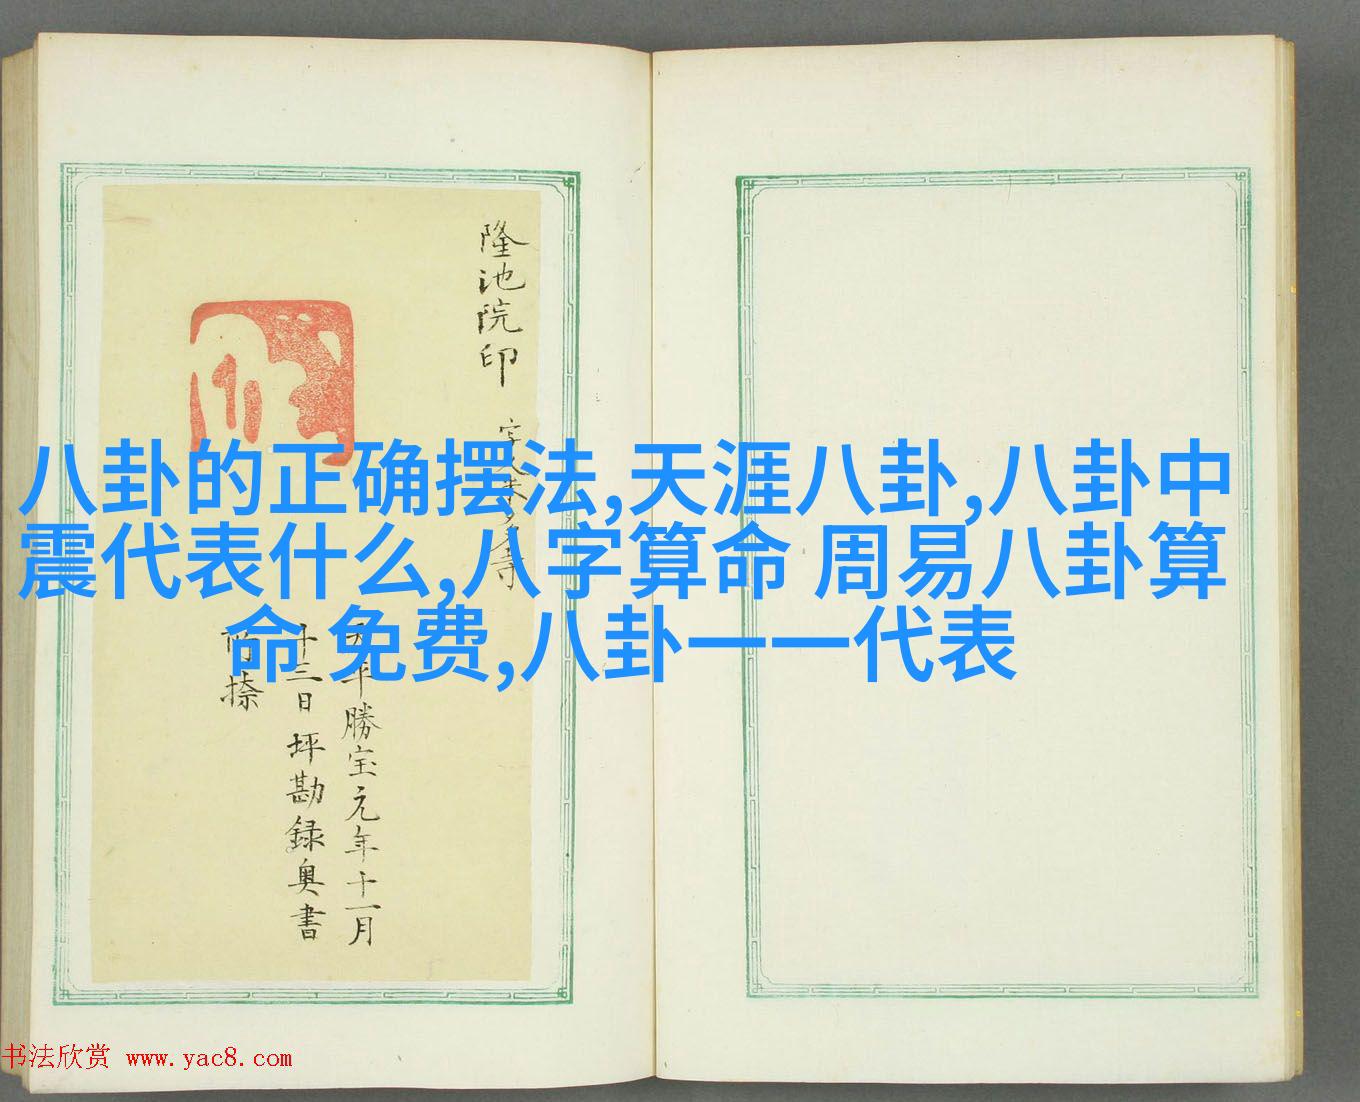 八卦的正确摆法,天涯八卦,八卦中
震代表什么,八字算命 周易八卦算
命 免费,八卦一一一代表
隆池院印
天平勝宝元年十一月
十三日 坪勘録奥書
所捺
书法欣赏 www.yac8.com